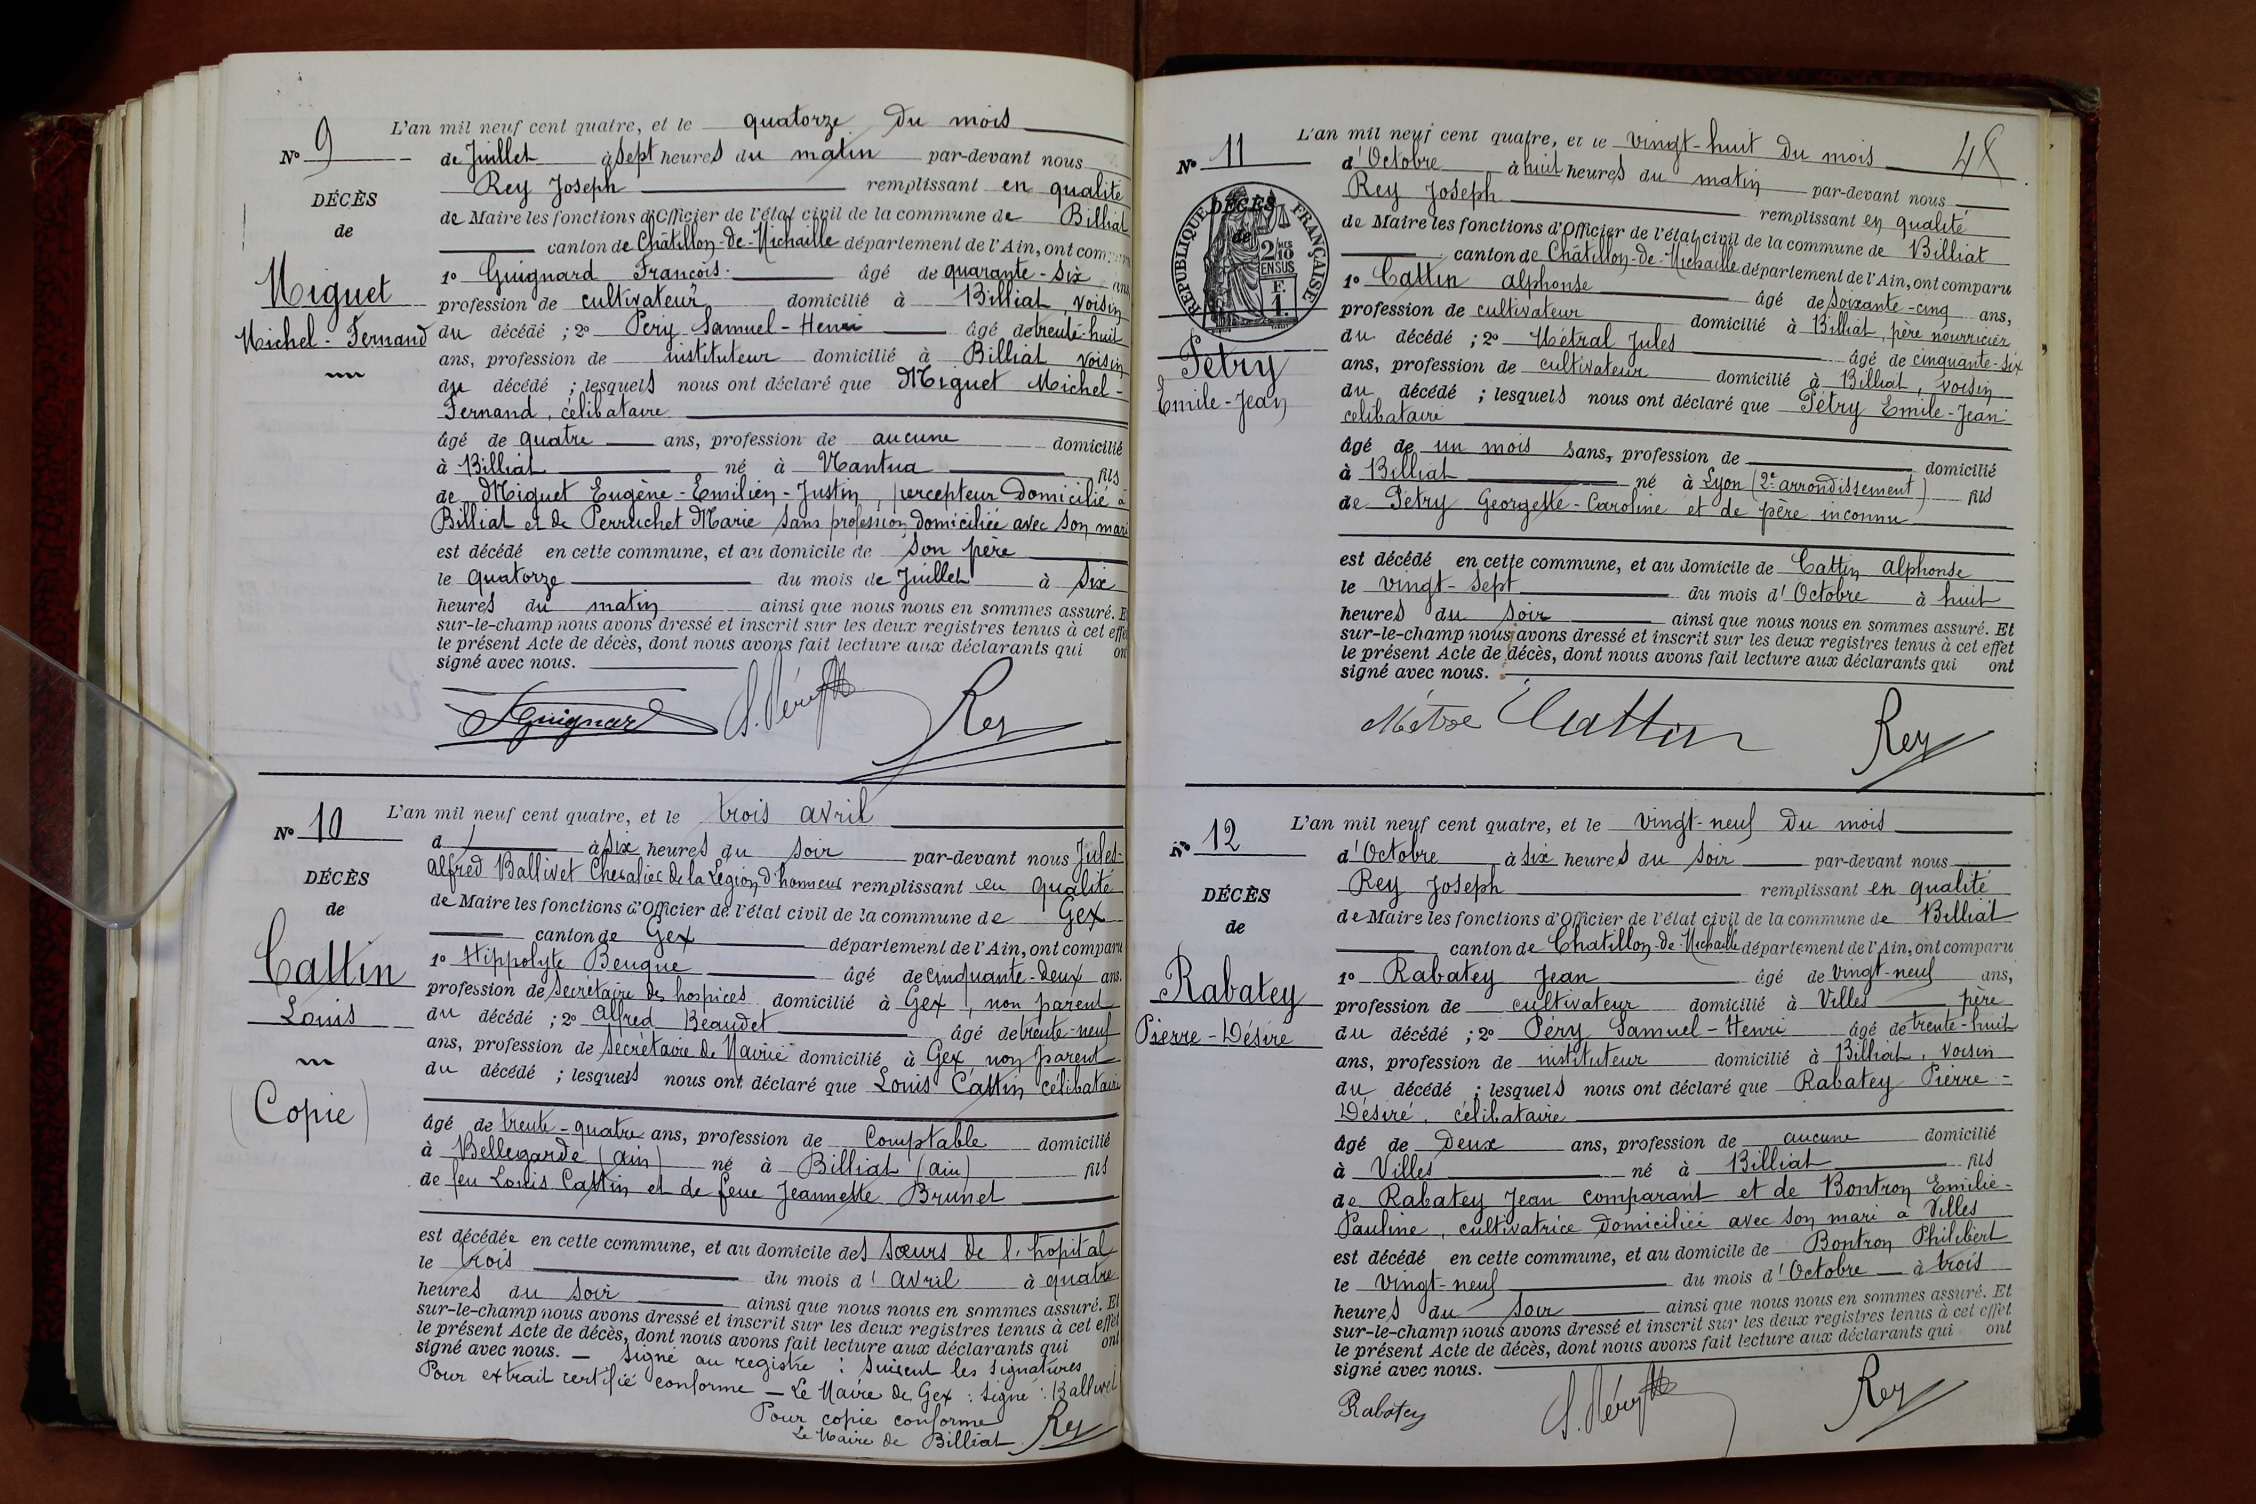 N° 9
DÉCÈS
de
Miguet
Michel-Fernand
L'an mil neuf cent quatre, et le quatorze du mois
de Juillet à sept heures du matin par-devant nous
Rey Joseph remplissant en qualité
de Maire les fonctions d'Officier de l'état civil de la commune de Billiat
canton de Châtillon-de-Michaille département de l'Ain, ont
1° Guignard François âgé de quarante-six ans
profession de cultivateur domicilié à Billiat, voisin
du décédé ; 2° Péry Samuel-Henri âgé de trente-huit
ans, profession de instituteur domicilié à Billiat voisin
du décédé ; lesquels nous ont déclaré que Miguet Michel-
Fernand, célibataire
âgé de quatre ans, profession de aucune domicilié
à Billiat né à Nantua fils
de Miguet Eugène-Emilien-Justin, percepteur domicilié à
Billiat et de Perruchet Marie sans profession domiciliée avec son mari
est décédé en cette commune, et au domicile de son père
le quatorze du mois de Juillet à six
heures du matin ainsi que nous nous en sommes assuré. Et
sur-le-champ nous avons dressé et inscrit sur les deux registres tenus à cet effet
le présent Acte de décès, dont nous avons fait lecture aux déclarants qui ont
signé avec nous.
Guignard S. Péry Rey
N° 10
DÉCÈS
de
Cattin
Louis
(Copie)
L'an mil neuf cent quatre, et le trois avril
d à six heures du soir par-devant nous Jules-
Alfred Ballivet Chevalier de la Légion d'honneur remplissant en qualité
de Maire les fonctions d'Officier de l'état civil de la commune de Gex
canton de Gex département de l'Ain, ont comparu
1° Hippolyte Beugue âgé de cinquante-deux ans.
profession de Secrétaire des hospices domicilié à Gex, non parent
du décédé ; 2° Alfred Beaudet âgé de trente-neuf
ans, profession de Secrétaire de Mairie domicilié à Gex, non parent
du décédé ; lesquels nous ont déclaré que Louis Cattin célibataire
âgé de trente-quatre ans, profession de Comptable domicilié
à Bellegarde (ain) né à Billiat (ain) fils
de feu Louis Cattin et de feue Jeannette Brunet
est décédée en cette commune, et au domicile des sœurs de l'hopital
le trois du mois d'avril à quatre
heures du soir ainsi que nous nous en sommes assuré. Et
sur-le-champ nous avons dressé et inscrit sur les deux registres tenus à cet effet
le présent Acte de décès, dont nous avons fait lecture aux déclarants qui ont
signé avec nous. — Signé au registre : Suivent les signatures
Pour extrait certifié conforme — Le Maire de Gex : signé : Ballivet
Pour copie conforme
Le Maire de Billiat Rey
48
N° 11
DÉCÈS
de
RÉPUBLIQUE FRANÇAISE
2/10 EN SUS
F.
1.
Pétry
Emile-Jean
L'an mil neuf cent quatre, et le vingt-huit du mois
d'Octobre à huit heures du matin par-devant nous
Rey Joseph remplissant en qualité
de Maire les fonctions d'Officier de l'état civil de la commune de Billiat
canton de Châtillon-de-Michaille département de l'Ain, ont comparu
1° Cattin alphonse âgé de soixante-cinq ans,
profession de cultivateur domicilié à Billiat, père nourricier
du décédé ; 2° Métral Jules âgé de cinquante-six
ans, profession de cultivateur domicilié à Billiat, voisin
du décédé ; lesquels nous ont déclaré que Pétry Emile-Jean
célibataire
âgé de un mois sans, profession de domicilié
à Billiat né à Lyon (2e arrondissement) fils
de Pétry Georgette-Caroline et de père inconnu
est décédé en cette commune, et au domicile de Cattin alphonse
le vingt-sept du mois d'Octobre à huit
heures du soir ainsi que nous nous en sommes assuré. Et
sur-le-champ nous avons dressé et inscrit sur les deux registres tenus à cet effet
le présent Acte de décès, dont nous avons fait lecture aux déclarants qui ont
signé avec nous.
Cattin Rey
N° 12
DÉCÈS
de
Rabatey
Pierre-Désiré
L'an mil neuf cent quatre, et le vingt-neuf du mois
d'Octobre à six heures du soir par-devant nous
Rey Joseph remplissant en qualité
de Maire les fonctions d'Officier de l'état civil de la commune de Billiat
canton de Chatillon-de-Michaille département de l'Ain, ont comparu
1° Rabatey Jean âgé de vingt-neuf ans,
profession de cultivateur domicilié à Villes père
du décédé ; 2° Péry Samuel-Henri âgé de trente-huit
ans, profession de instituteur domicilié à Billiat, voisin
du décédé ; lesquels nous ont déclaré que Rabatey Pierre-
Désiré, célibataire
âgé de Deux ans, profession de aucune domicilié
à Villes né à Billiat fils
de Rabatey Jean comparant et de Bontron Emilie-
Pauline, cultivatrice domiciliée avec son mari à Villes
est décédé en cette commune, et au domicile de Bontron Philibert
le vingt-neuf du mois d'Octobre à trois
heures du soir ainsi que nous nous en sommes assuré. Et
sur-le-champ nous avons dressé et inscrit sur les deux registres tenus à cet effet
le présent Acte de décès, dont nous avons fait lecture aux déclarants qui ont
signé avec nous.
Rabatey S. Péry Rey